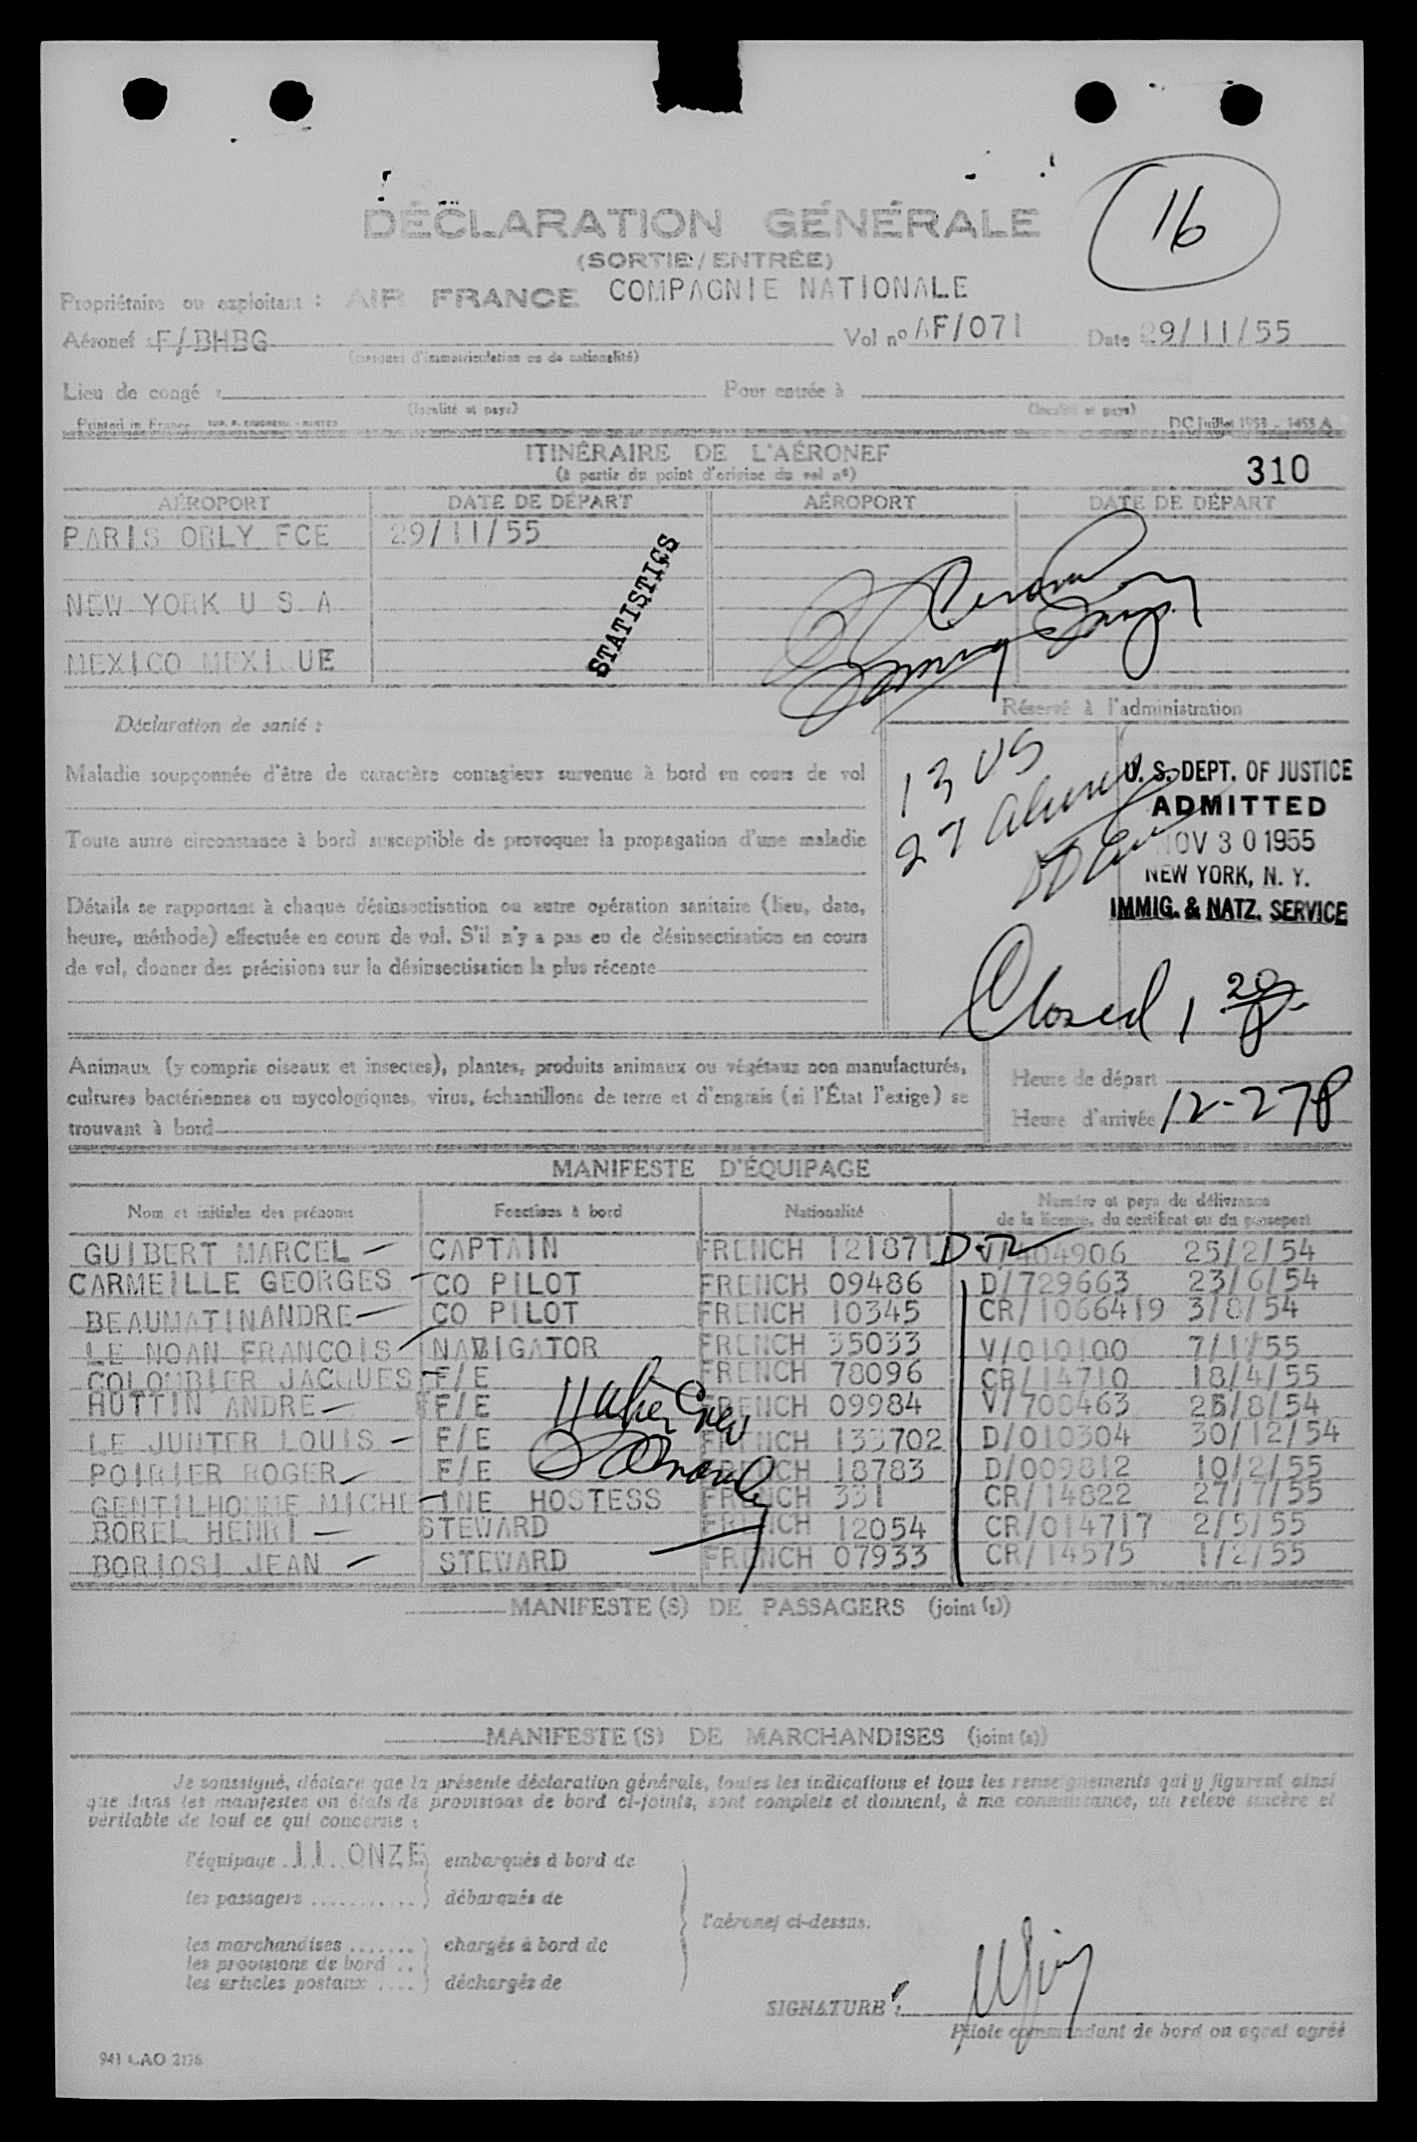 16
DÉCLARATION GÉNÉRALE
(SORTIE/ENTRÉE)
Propriétaire ou exploitant : AIR FRANCE COMPAGNIE NATIONALE
Aéronef : F/BHBG Vol nº AF/071 Date 29/11/55
(marques d'immatriculation ou de nationalité)
Lieu de congé : Pour entrée à
(localité et pays) (localité et pays)
Printed in France DC Juillet 1953 - 1453 A
ITINÉRAIRE DE L'AÉRONEF
(à partir du point d'origine du vol nº)
310
AÉROPORT DATE DE DÉPART AÉROPORT DATE DE DÉPART
PARIS ORLY FCE 29/11/55
STATISTICS
NEW YORK U S A
MEXICO MEXIQUE
Déclaration de santé :
Réservé à l'administration
Maladie soupçonnée d'être de caractère contagieux survenue à bord en cours de vol
Toute autre circonstance à bord susceptible de provoquer la propagation d'une maladie
Détails se rapportant à chaque désinsectisation ou autre opération sanitaire (lieu, date,
heure, méthode) effectuée en cours de vol. S'il n'y a pas eu de désinsectisation en cours
de vol, donner des précisions sur la désinsectisation la plus récente
13 US
27 aliens
U. S. DEPT. OF JUSTICE
ADMITTED
NOV 30 1955
NEW YORK, N. Y.
IMMIG. & NATZ. SERVICE
Closed 1 20 P
Animaux (y compris oiseaux et insectes), plantes, produits animaux ou végétaux non manufacturés,
cultures bactériennes ou mycologiques, virus, échantillons de terre et d'engrais (si l'État l'exige) se
trouvant à bord
Heure de départ
Heure d'arrivée 12-27P
MANIFESTE D'ÉQUIPAGE
Nom et initiales des prénoms Fonctions à bord Nationalité Numéro et pays de délivrance
de la licence, du certificat ou du passeport
GUIBERT MARCEL CAPTAIN FRENCH 121871 D-2 V/404906 25/2/54
CARMEILLE GEORGES CO PILOT FRENCH 09486 D/729663 23/6/54
BEAUMATINANDRE CO PILOT FRENCH 10345 CR/1066419 3/8/54
LE NOAN FRANCOIS NAVIGATOR FRENCH 35033 V/010100 7/1/55
COLOMBIER JACQUES F/E FRENCH 78096 CR/14710 18/4/55
HUTTIN ANDRE F/E FRENCH 09984 V/708463 26/8/54
LE JUNTER LOUIS F/E FRENCH 133702 D/010304 30/12/54
POIRIER ROGER F/E FRENCH 18783 D/009812 10/2/55
GENTILHOMME MICHELINE HOSTESS FRENCH 331 CR/14822 27/7/55
BOREL HENRI STEWARD FRENCH 12054 CR/014717 2/5/55
BORIOSI JEAN STEWARD FRENCH 07933 CR/14575 1/2/55
MANIFESTE(S) DE PASSAGERS (joint (s))
MANIFESTE(S) DE MARCHANDISES (joint (s))
Je soussigné, déclare que la présente déclaration générale, toutes les indications et tous les renseignements qui y figurent ainsi
que dans les manifestes ou états de provisions de bord ci-joints, sont complets et donnent, à ma connaissance, un relevé sincère et
véritable de tout ce qui concerne :
l'équipage 11 ONZE embarqués à bord de
les passagers débarqués de
l'aéronef ci-dessus.
les marchandises chargés à bord de
les provisions de bord
les articles postaux déchargés de
SIGNATURE :
Pilote commandant de bord ou agent agréé
941 CAO 2136